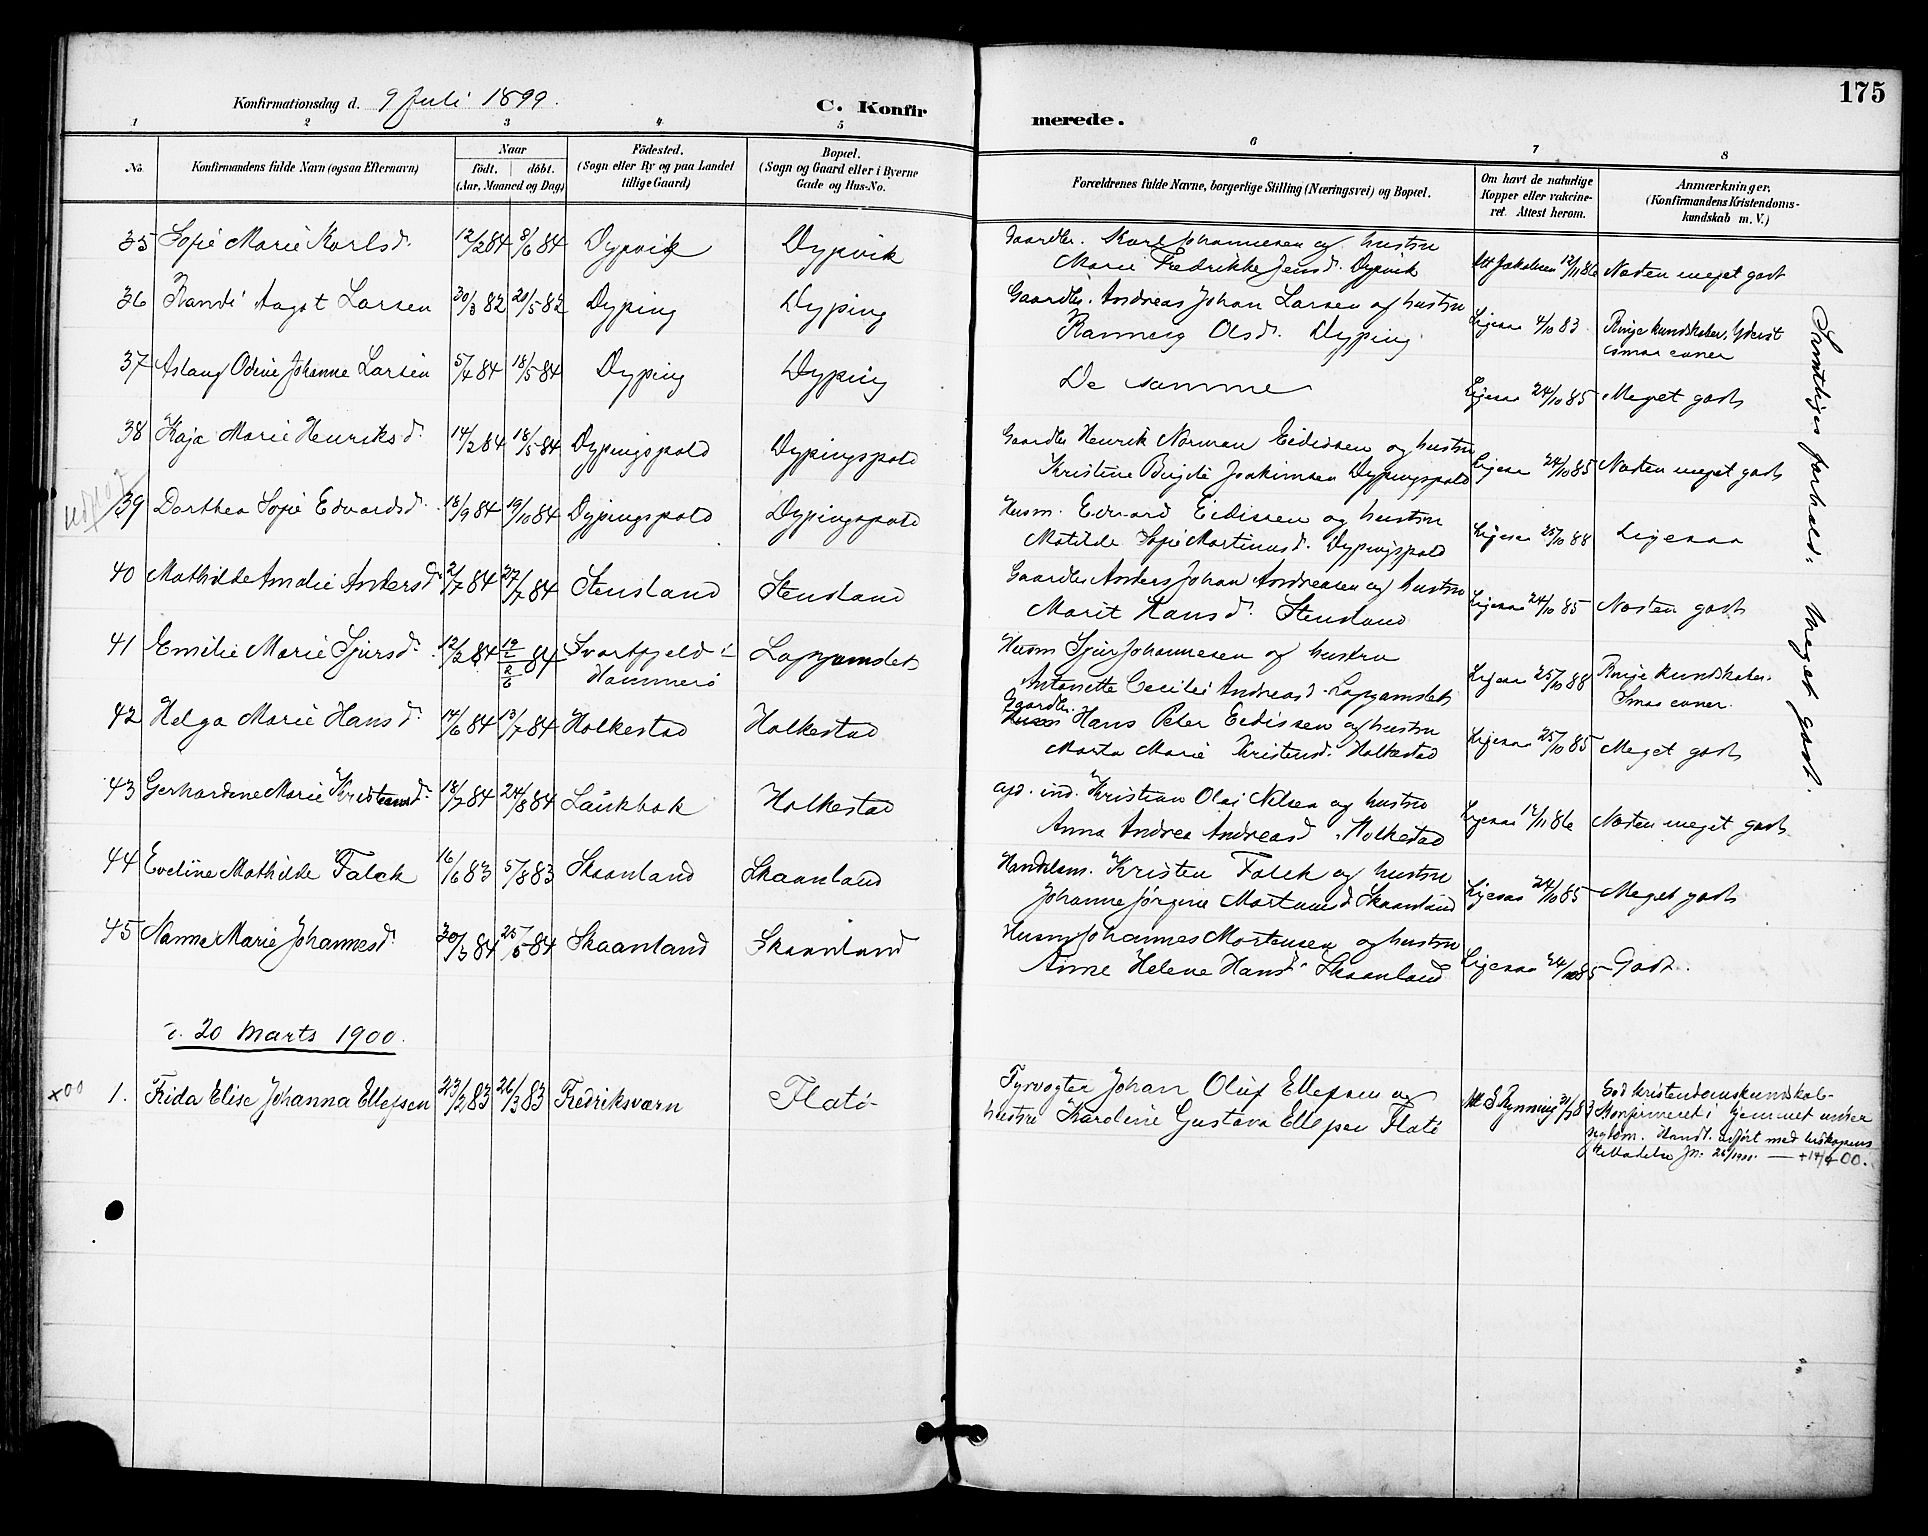 175
Konfirmationsdag d. 9 Juli 1899.
C. Konfirmerede.
1 2 3 4 5 6 7 8
No.
Konfirmandens fulde Navn (ogsaa Efternavn)
Naar
født. døbt.
(Aar, Maaned og Dag)
Fødested.
(Sogn eller By og paa Landet
tillige Gaard)
Bopæl.
(Sogn og Gaard eller i Byerne
Gade og Hus-No.
Forældrenes fulde Navne, borgerlige Stilling (Næringsvei) og Bopæl.
Om havt de naturlige
Kopper eller vakcine-
ret. Attest herom.
Anmærkninger.
(Konfirmandens Kristendoms-
kundskab m. V.)
35 Sofie Marie Karlsd. 12/2 84 8/6 84 Dypvik Dypvik Gaardbr. Karl Johannesen og hustru
Marie Fredrikke Jensd. Dypvik Att Jakobsen 12/11 86 Næsten meget godt
36 Randi Aagot Larsen 30/3 82 20/5 82 Dyping Dyping Gaardbr. Andreas Johan Larsen og hustru
Ranneig Olsd. Dyping Ligesaa 4/10 83 Ringe kundskaber. Yderst
smaa evner
37 Aslaug Odine Johanne Larsen 5/4 84 18/5 84 Dyping Dyping De samme Ligesaa 24/10 85 Meget godt
38 Kaja Marie Henriksd. 14/2 84 18/5 84 Dypingspold Dypingspold Gaardbr Henrik Norman Eidissen og hustru
Kristine Birgite Joakimsen Dypingspold Ligesaa 24/10 85 Næsten meget godt
39 Dorthea Sofie Edvardsd. 18/9 84 19/10 84 Dypingspold Dypingspold Husm. Edvard Eidissen og hustru
Matilde Sofie Martinusd. Dypingspold Ligesaa 25/10 88 Ligesaa
40 Mathilde Amalie Andersd. 2/7 84 27/7 84 Stensland Stensland Gaardbr Anders Johan Andreasen og hustru
Marit Hansd. Stensland Ligesaa 24/10 85 Næsten godt
41 Emilie Marie Sjursd. 12/2 84 84 Svartfjeld i
Hammerö Husm Sjur Johannesen og hustru
Antonette Cecilie Andreasd. Ligesaa 25/10 88 Ringe kundskaber.
Smaa evner.
42 Helga Marie Hansd. 14/6 84 13/7 84 Holkestad Holkestad Gaardbr.
Husm Hans Peter Eidissen og hustru
Marta Marie Kristensd. Holkestad Ligesaa 25/10 85 Meget godt
43 Gerhardine Marie Kristiansd. 18/7 84 24/8 84 Laukbak Holkestad ind. Kristian Olai Nilsen og hustru
Anna Andrea Andreasd. Holkestad Ligesaa 12/11 86 Næsten meget godt
44 Eveline Mathilde Falck 16/6 83 5/8 83 Skaanland Skaanland Handelsm. Kristen Falck og hustru
Johanne Jørgine Skaanland Ligesaa 24/10 85 Meget godt
45 Nanna Marie Johannesd. 30/3 84 25/5 84 Skaanland Skaanland Husm Johannes Mortensen og hustru
Anne Helene Hansd. Skaanland Ligesaa 24/10 85 Godt.
Samtliges forhold: Meget godt.
d. 20 Marts 1900.
+00 1. Frida Elise Johanna Ellefsen 23/2 83 26/3 83 Fredriksværn Flatö Fyrvogter Johan Oluf Ellefsen og
hustru Karoline Gustava Ellefsen Flatö Att S Rynning God kristendomskundskab-
Konfirmeret i hjemmet under
sygdom. med biskopens
tilladelse